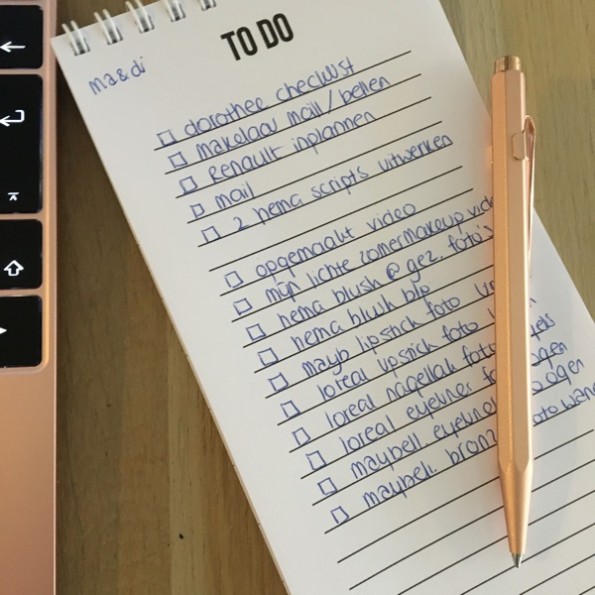 TO DO
ma&di
dorothee checklist
makelaar mail / bellen
Renault inplannen
mail
2 hema scripts uitwerken
opgemaakt video
mijn lichte zomermakeup
hema blush @ gez. foto's
hema blush blp
mayb lipstick foto
loreal lipstick foto
loreal nagellak foto
loreal eyeliner
maybell. eyeliner ogen
maybell. bronz